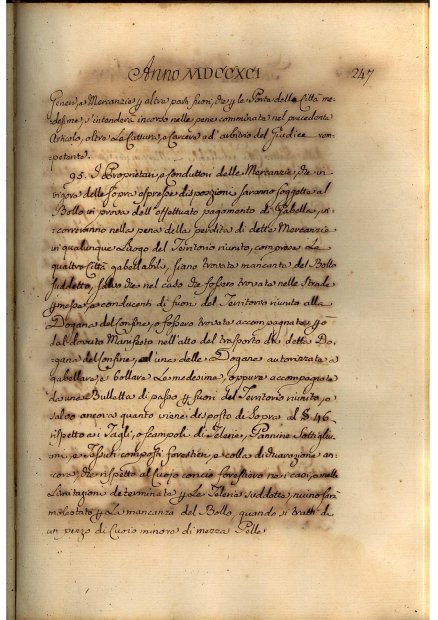 Anno MDCCXCI
247
Generi, o Mercanzie p altre parti fuori, che p le Porte delle Città me-
desime, s'intenderà incorso nelle pene comminate nel precedente
Articolo, oltre La Cattura, e Carcere ad arbitrio del Giudice com-
petente.
95. I Proprietarj, o Conduttori delle Mercanzie, che in
vigore delle sopra espresse disposizioni saranno soggette al
Bollo in prova dell'effettuato pagamento di Gabella, in-
correranno nella pena della perdita di dette Mercanzie
in qualunque Luogo del Territorio riunito, comprese Le
quattro Città gabellabili, siano trovate mancanti del Bollo
suddetto, salvo che nel caso che fossero trovate nelle Strade
p messe, e conducenti di fuori del Territorio riunito alla
Dogana del Confine, o fossero trovate accompagnate p
dal dovuto Manifesto nell'atto del trasporto di dette Do-
gana del Confine, ad una delle Dogane autorizzate a
gabellare, e bollare Le medesime, oppure accompagnate
da una Bulletta di passo p fuori del Territorio riunito, e
salvo ancora quanto viene disposto di Sopra al §. 46
rispetto ai Tagli, o Scampoli di Telerie, Pannine
e Tessuti composti forestieri, e colla dichiarazione an-
cora, che rispetto al Cuojo concio forestiero nei casi, e nelle
Limitazioni determinate p Le Telerie suddette, niuno sarà
molestato p La mancanza del Bollo, quando si tratti di
un pezzo di Cuojo minore di mezza Pelle